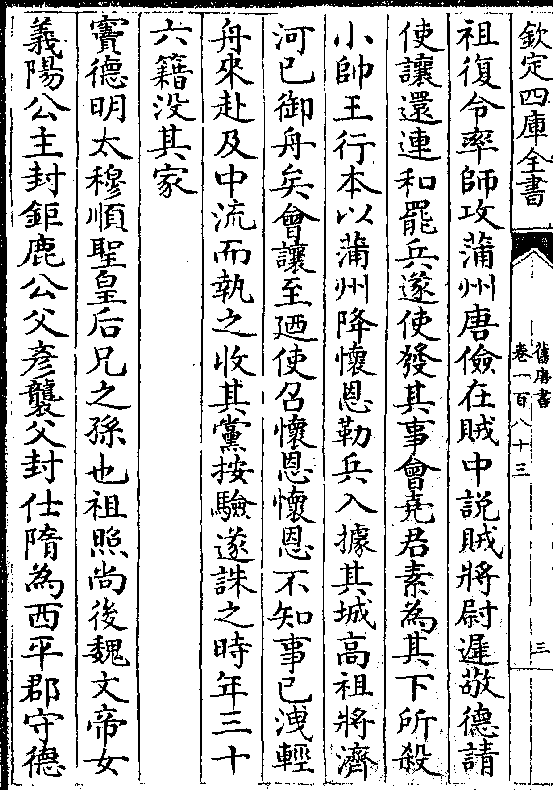 欽定四庫全書
舊唐書
卷一百八十三
三
祖復令率師攻蒲州唐儉在賊中説賊將尉遲敬德請
使讓還連和罷兵遂使發其事會堯君素為其下所殺
小帥王行本以蒲州降懷恩勒兵入據其城高祖將濟
河已御舟矣會讓至廼使召懷恩懷恩不知事已洩輕
舟來赴及中流而執之收其黨按驗遂誅之時年三十
六籍没其家
竇德明太穆順聖皇后兄之孫也祖照尚後魏文帝女
義陽公主封鉅鹿公父彦襲父封仕隋為西平郡守德